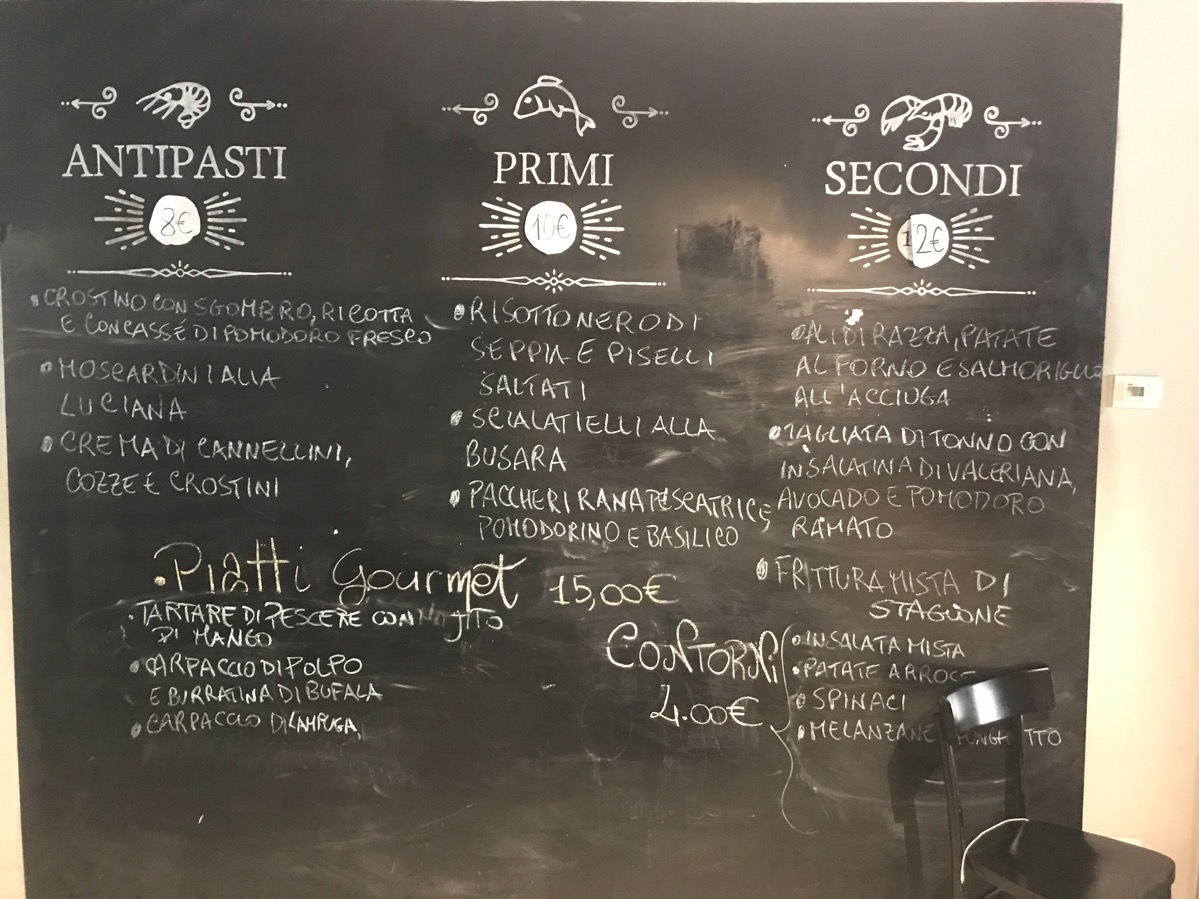 ANTIPASTI
8€
CROSTINO CON SGOMBRO, RICOTTA
E CONCASSÈ DI POMODORO FRESCO
MOSCARDINI ALLA
LUCIANA
CREMA DI CANNELLINI,
COZZE E CROSTINI
PRIMI
10€
RISOTTO NERO DI
SEPPIA E PISELLI
SALTATI
SCIALATIELLI ALLA
BUSARA
PACCHERI RANA PESCATRICE,
POMODORINO E BASILICO
SECONDI
12€
ALI DI RAZZA, PATATE
AL FORNO E SALMORIGLIO
ALL'ACCIUGA
TAGLIATA DI TONNO CON
INSALATINA DI VALERIANA,
AVOCADO E POMODORO
RAMATO
FRITTURA MISTA DI
STAGIONE
Piatti Gourmet 15,00€
TARTARE DI PESCE RE CON MOJITO
DI MANGO
CARPACCIO DI POLPO
E BURRATINA DI BUFALA
CARPACCIO DI LAMPUGA
CONTORNI
4.00€
INSALATA MISTA
PATATE ARROST
SPINACI
MELANZANE